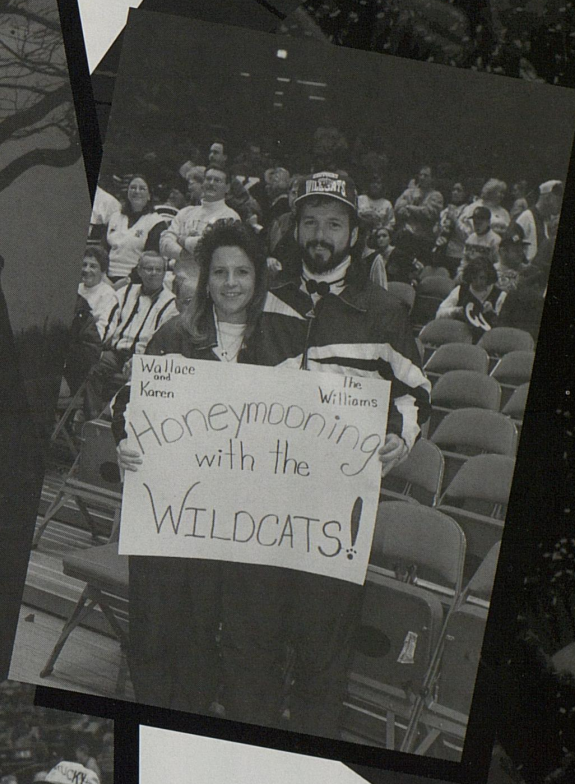 WILDCATS
Wallace
and
Karen
The
Williams
Honeymooning
with the
WILDCATS!